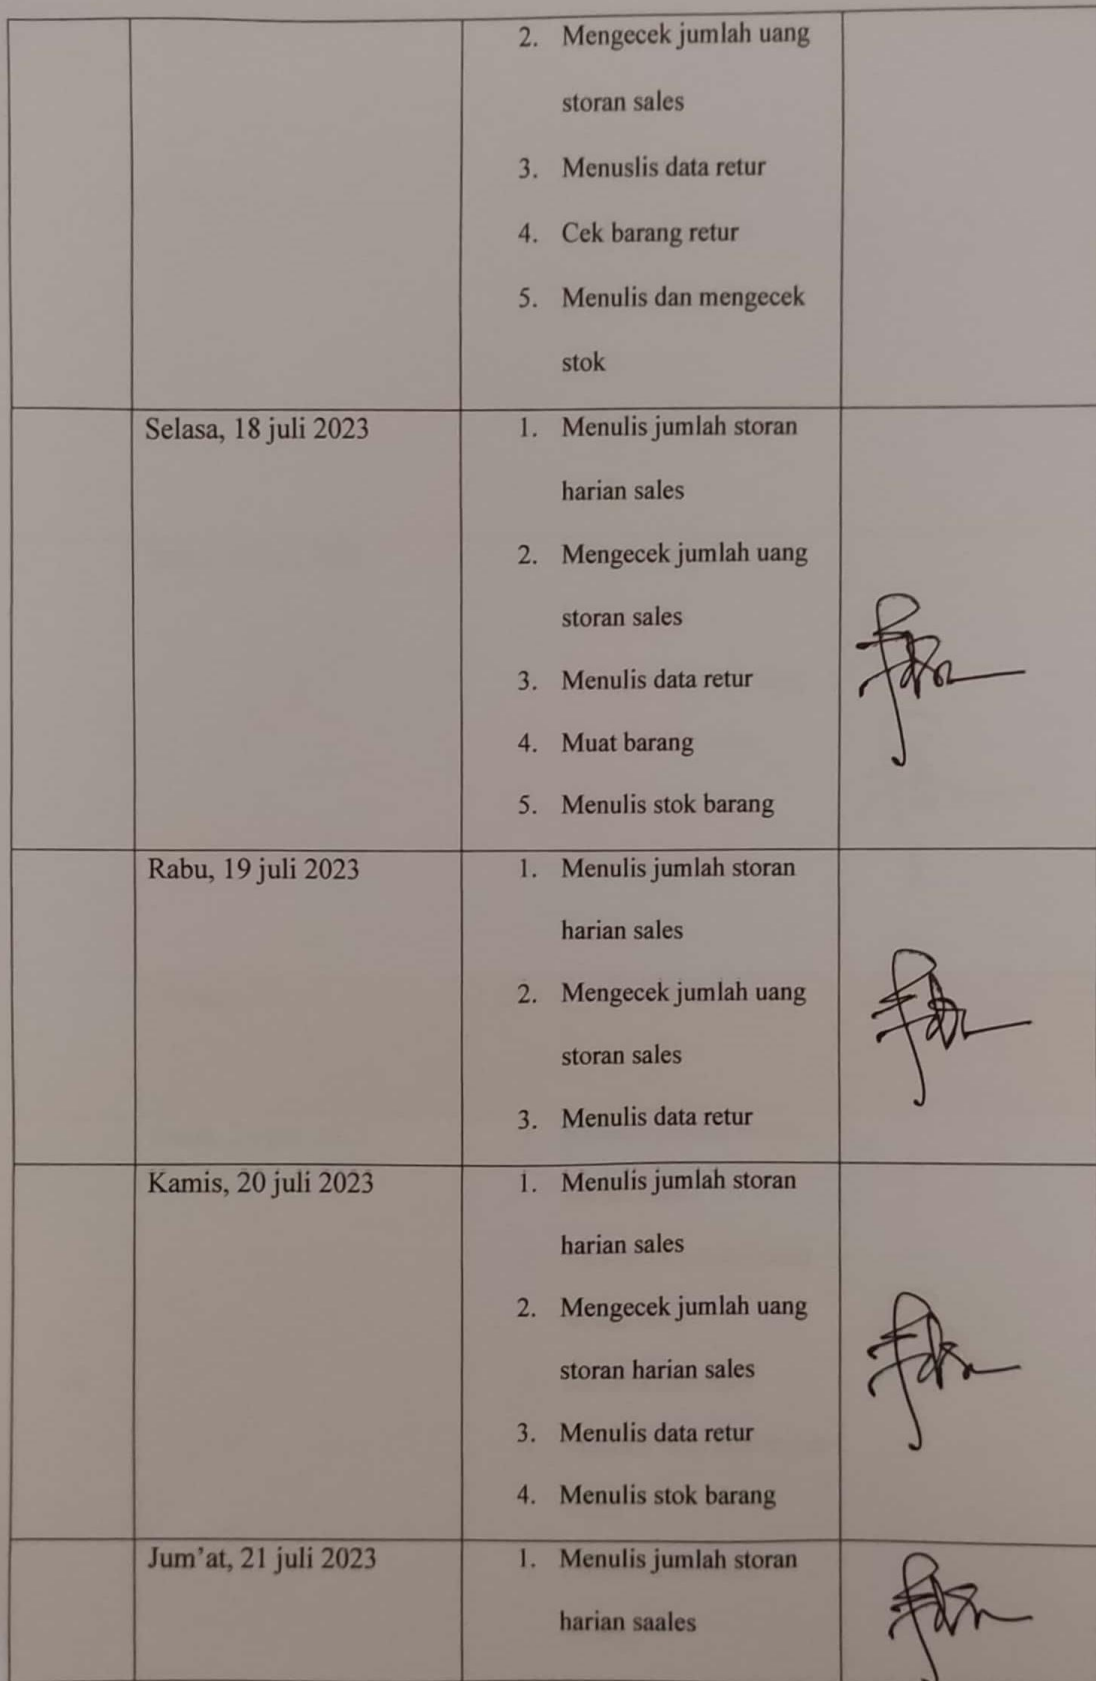 2. Mengecek jumlah uang
storan sales
3. Menuslis data retur
4. Cek barang retur
5. Menulis dan mengecek
stok
Selasa, 18 juli 2023
1. Menulis jumlah storan
harian sales
2. Mengecek jumlah uang
storan sales
3. Menulis data retur
4. Muat barang
5. Menulis stok barang
Rabu, 19 juli 2023
1. Menulis jumlah storan
harian sales
2. Mengecek jumlah uang
storan sales
3. Menulis data retur
Kamis, 20 juli 2023
1. Menulis jumlah storan
harian sales
2. Mengecek jumlah uang
storan harian sales
3. Menulis data retur
4. Menulis stok barang
Jum’at, 21 juli 2023
1. Menulis jumlah storan
harian saales